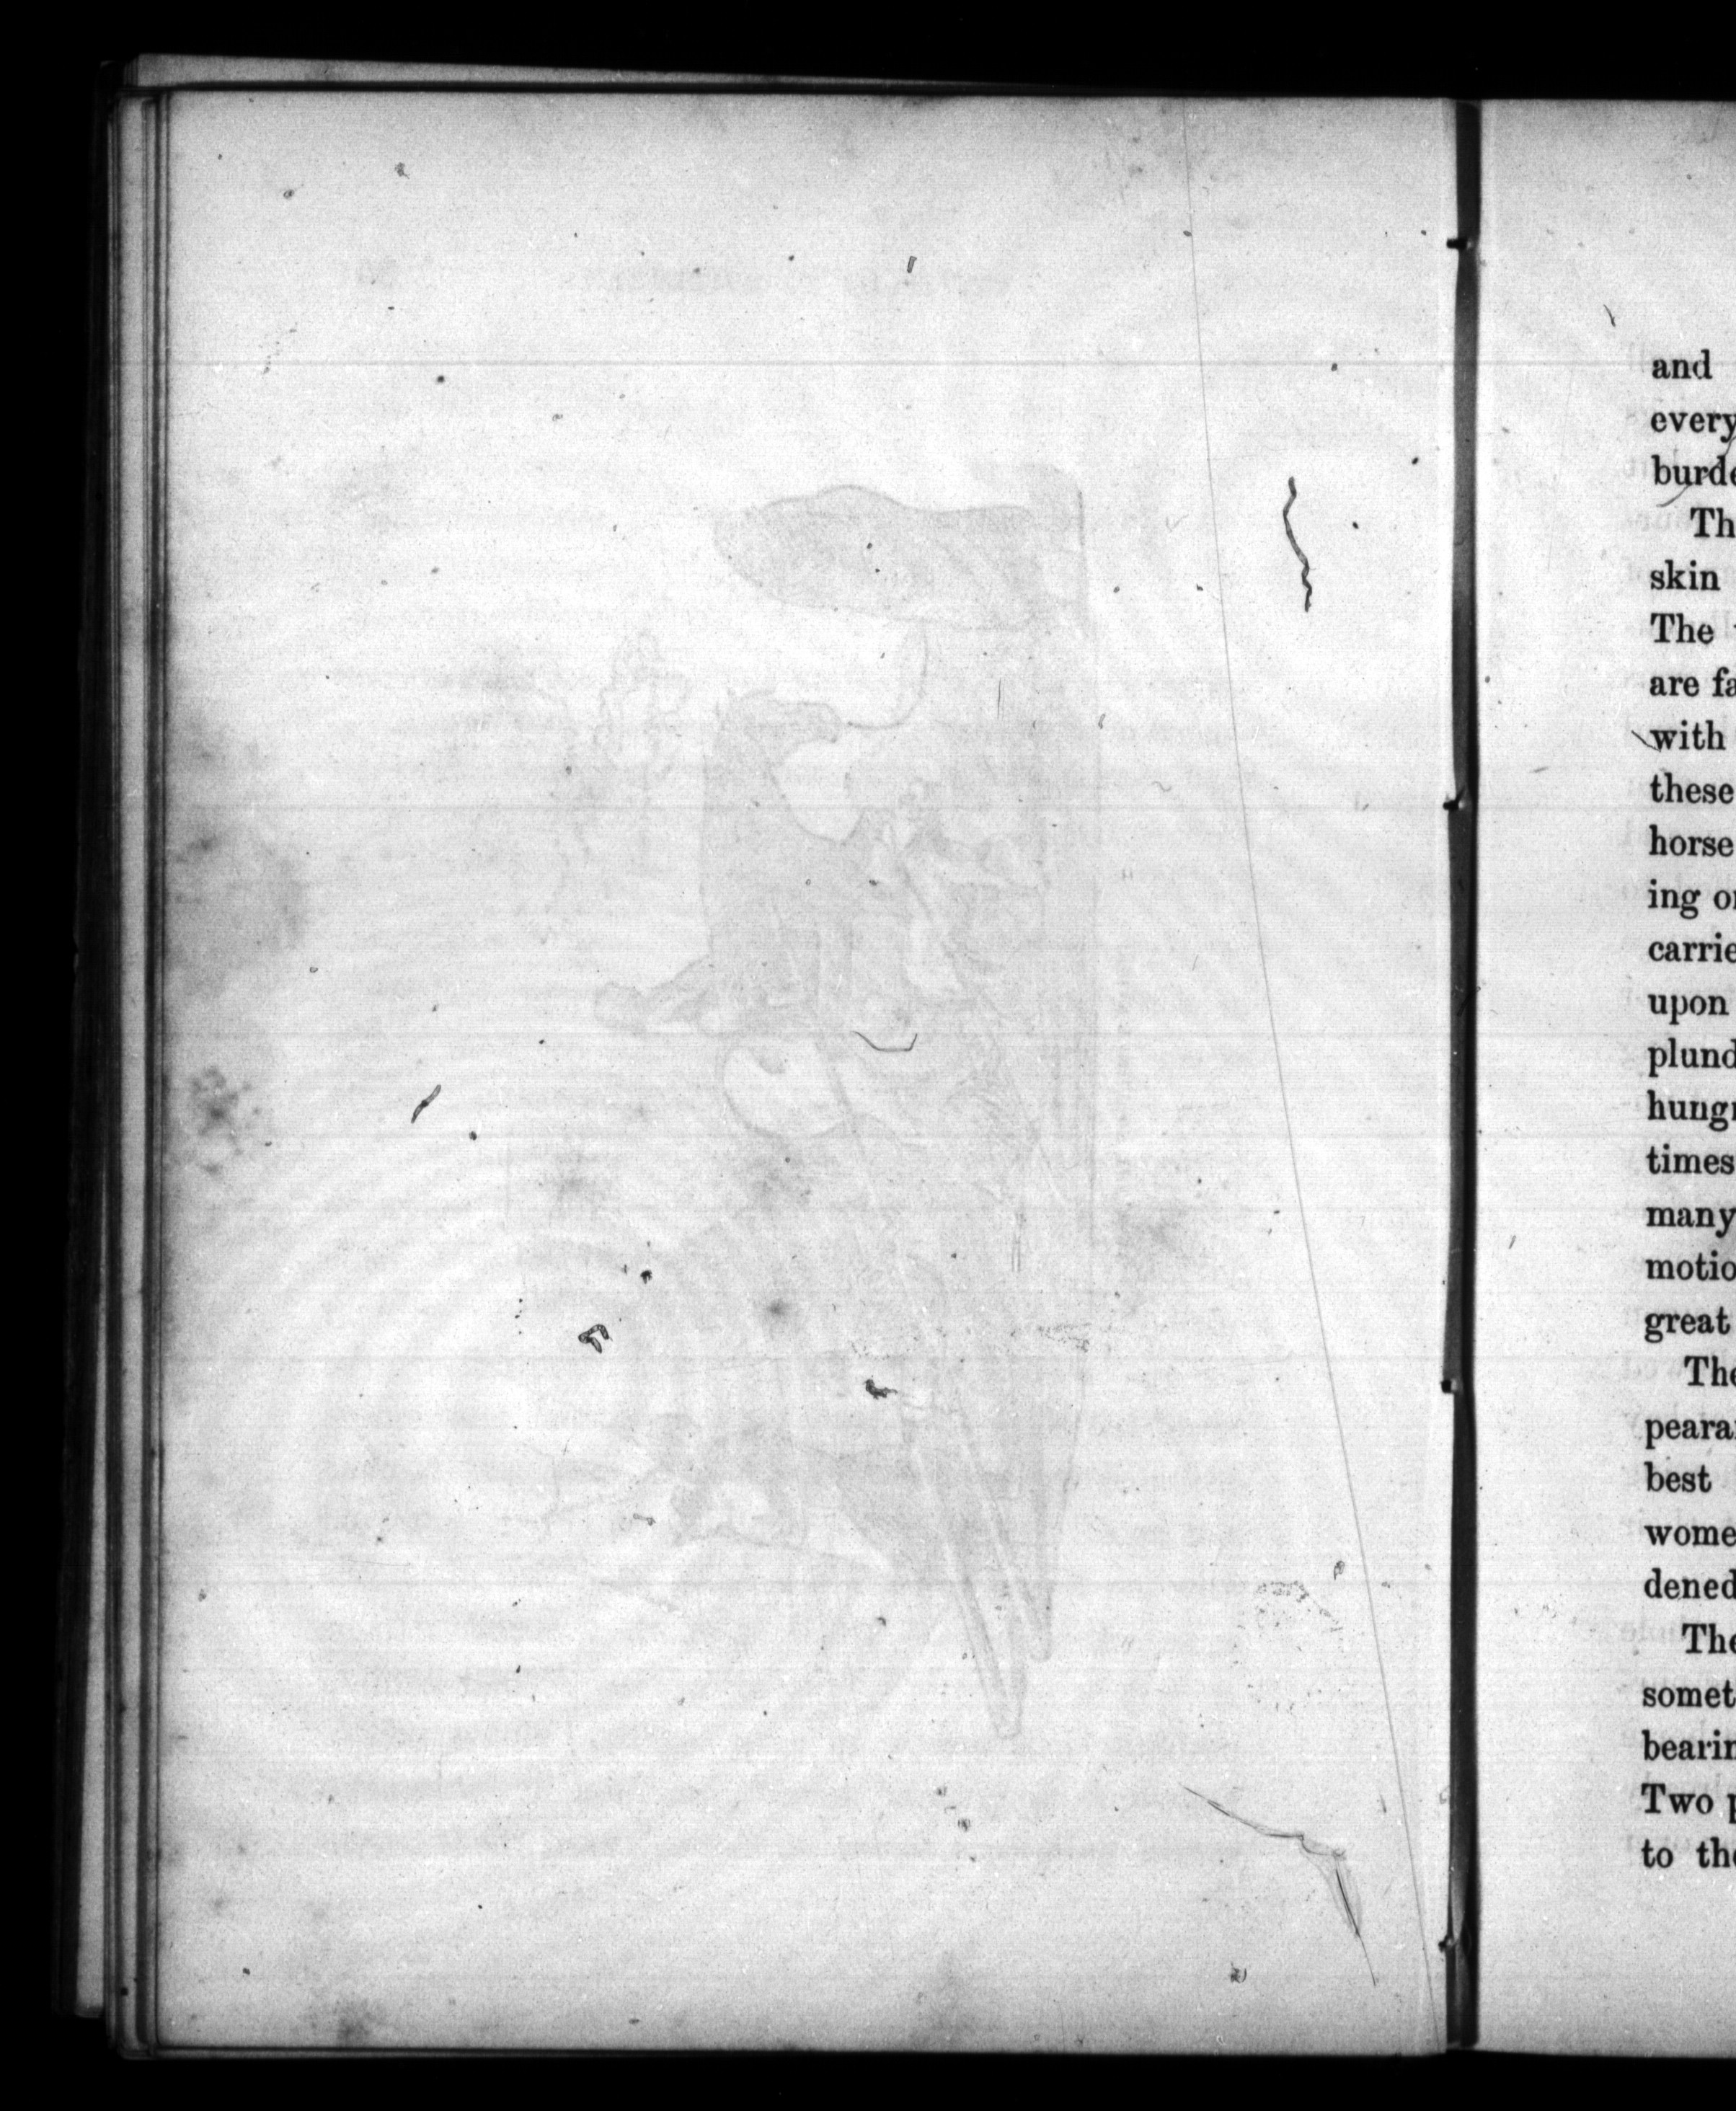 and
every
burde
Th
skin
The
are fa
with
these
horse
ing o
carrie
upon
plund
hungr
times
many
motio
great
The
peara
best
wome
dened
The
somet
bearin
Two p
to the